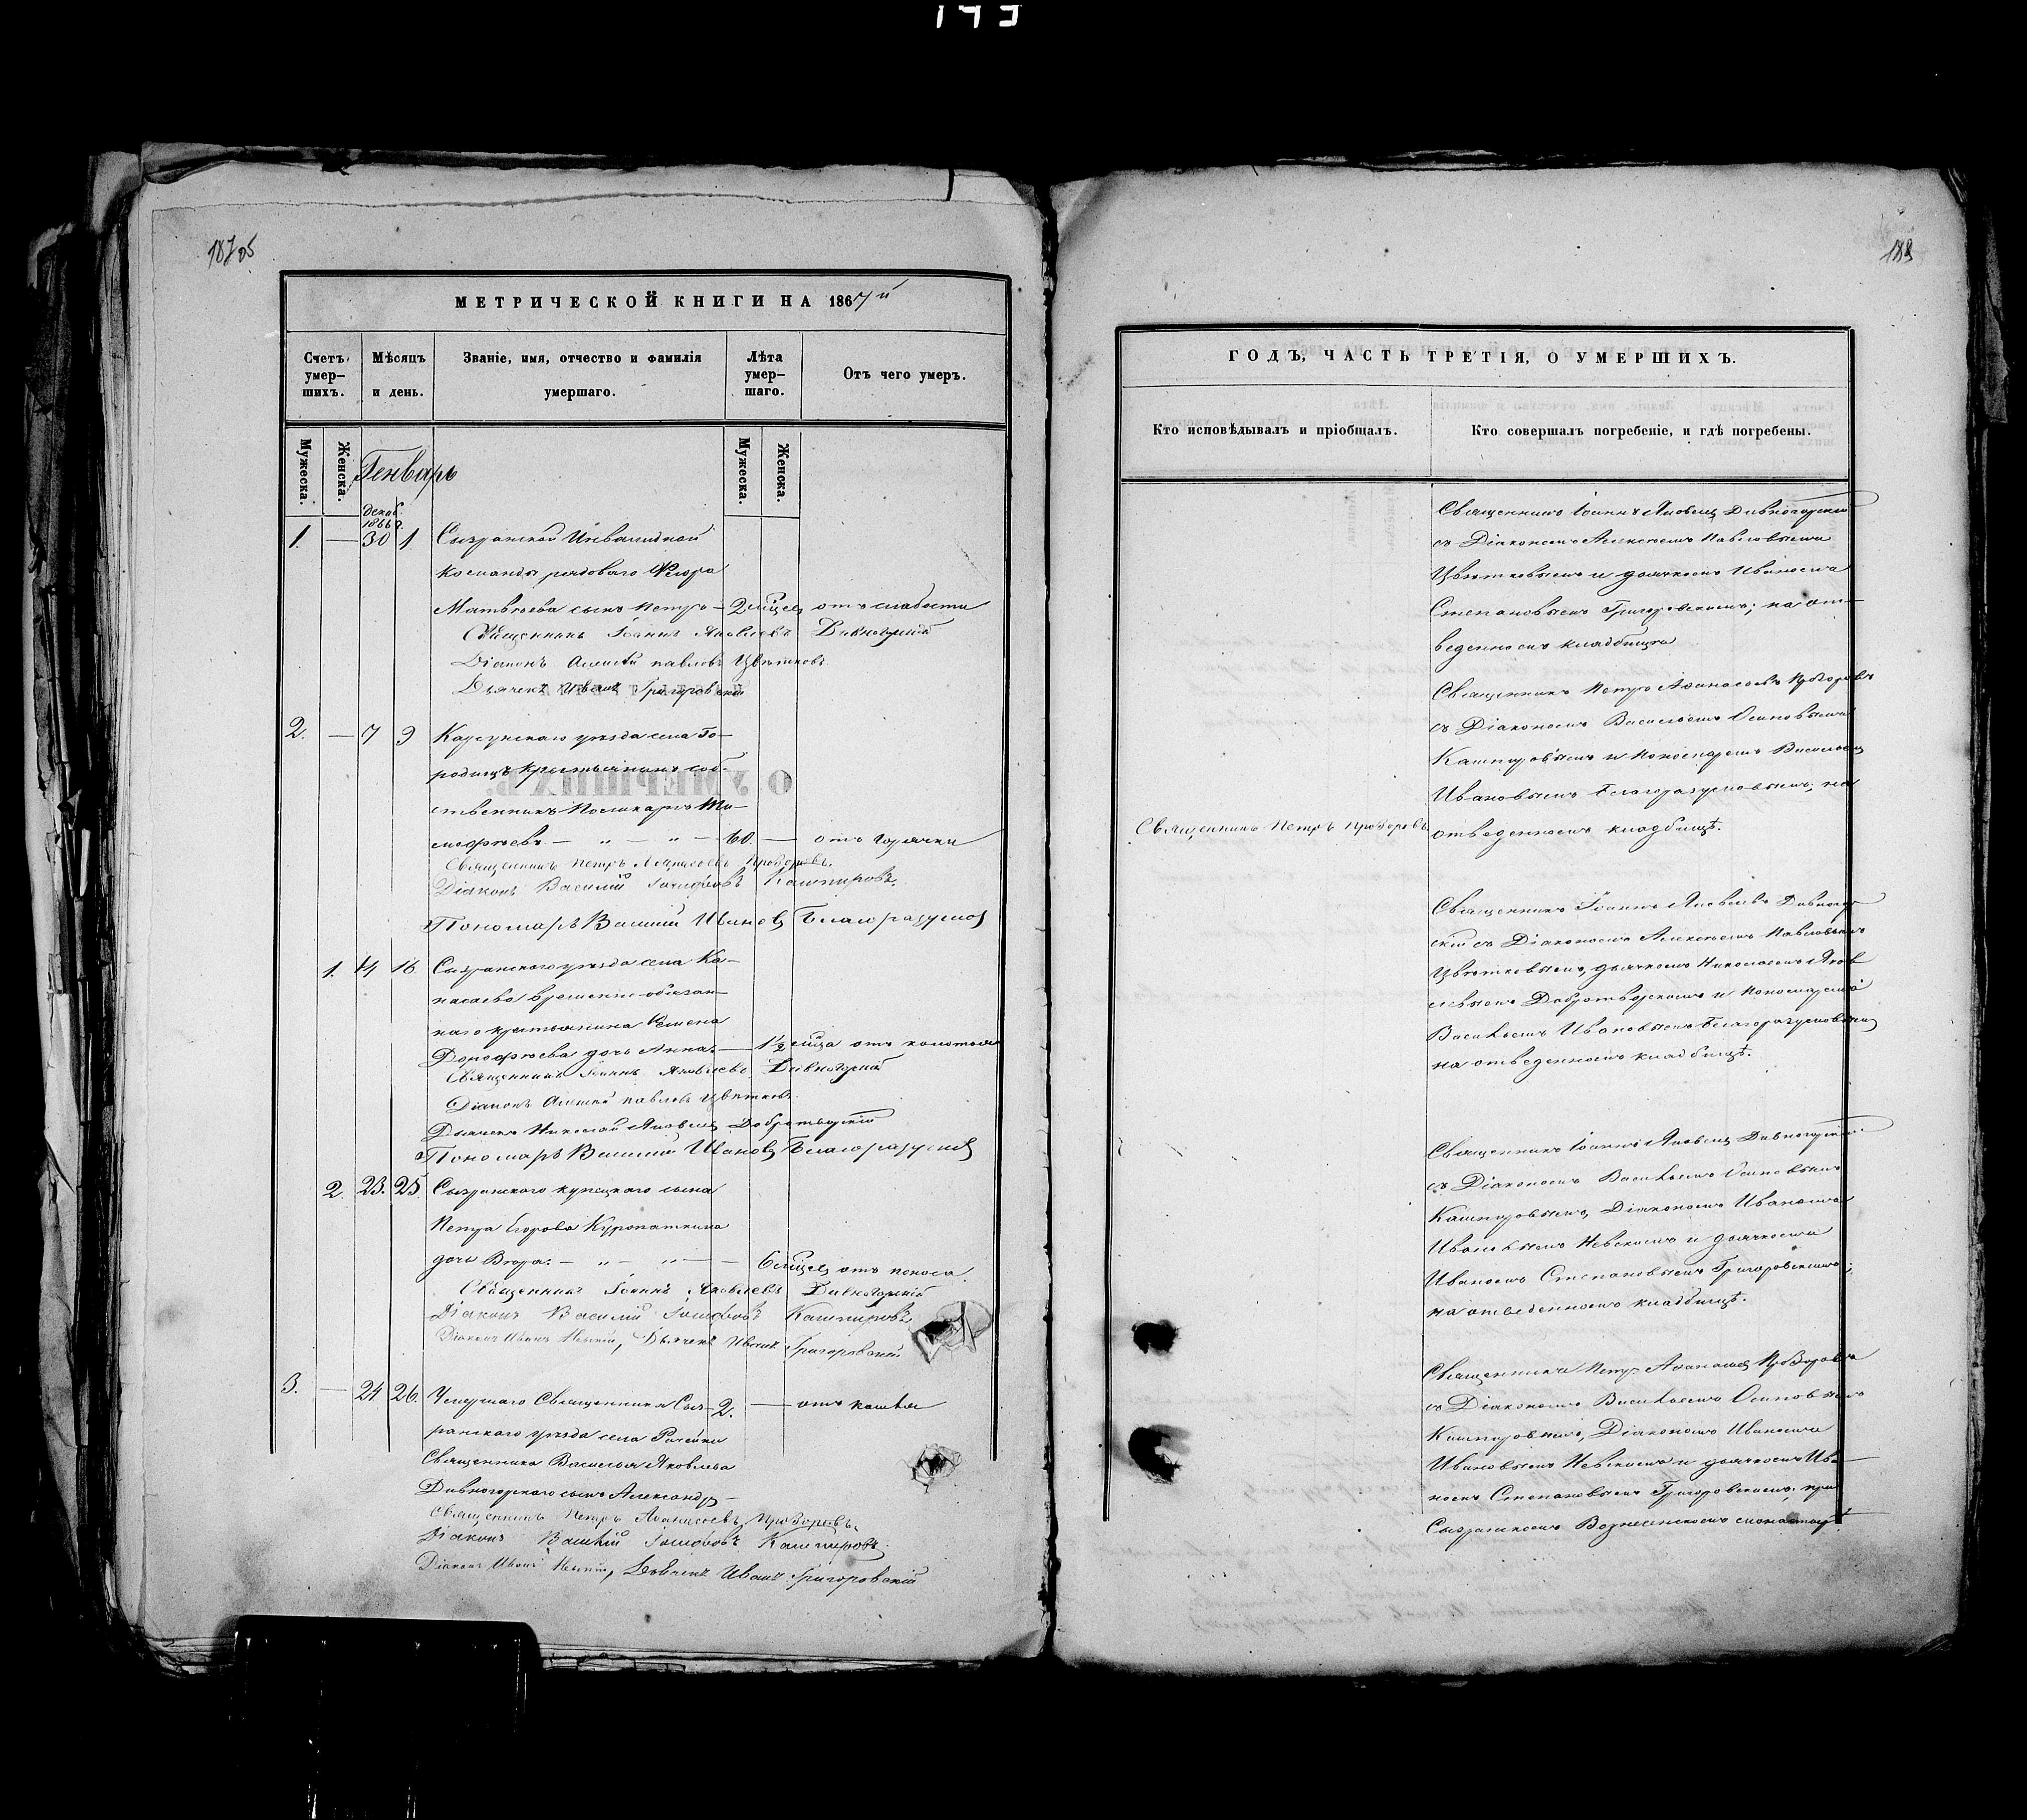 МЕТРИЧЕСКОЙ КНИГИ НА 1867й
Счетъ умер-шихъ.
Мѣсяцъ и день.
Званіе, имя, отчество и фамилія умершаго.
Лѣта умер-шаго.
Отъ чего умеръ.
Мужеска.
Женска.
Мужеска.
Женска.
Генварь
декаб.
1866 г.
1. — 30 1 Сызранской Инвалидной
команды рядоваго Ѳедора
Матвѣева сынъ Петръ — 2 мѣсец отъ слабости
Священникъ Іоаннъ Яковлевъ Дивногорскій
Діаконъ Алексѣй Павловъ Цвѣтковъ
Дьячекъ Иванъ Григоровскій
2. — 7 9 Карсунскаго уѣзда села Го-
родищъ крестьянинъ соб-
ственникъ Поликарпъ Ти-
моѳѣевъ. — „ — „ — 60. — отъ горячки
Священникъ Петръ Аѳанасьевъ Прозоровъ.
Діаконъ Василій Іосифовъ Кашпировъ.
Пономарь Василій Ивановъ Благоразумов
1. 14 16. Сызранскаго уѣзда села Ка-
насаева временно-обязан-
наго крестьянина Семена
Дороѳѣева дочь Анна. — 1½ мѣца отъ колотья
Священникъ Іоаннъ Яковлевъ Дивногорскій
Діаконъ Алексѣй Павловъ Цвѣтковъ
Дьячекъ Николай Яковлев Добротворскій
Пономарь Василій Ивановъ Благоразумов
2. 23. 25. Сызранскаго купецкаго сына
Петра Егорова Куропаткина
дочь Вѣра. — „ — „ — — 6 мѣсец отъ поноса.
Священникъ Іоаннъ Яковлевъ Дивногорскій
Діаконъ Василій Іосифовъ Кашпировъ
Діаконъ Иванъ Невскій, Дьячекъ Иванъ Григоровскій
3. — 24 26. Умершаго Священника Сыз- 2. — отъ кашля
ранскаго уѣзда села Рачейки
Священника Василья Яковлева
Дивногорскаго сынъ Александръ
Священникъ Петръ Аѳанасьевъ Прозоровъ.
Діаконъ Василій Іосифовъ Кашпировъ.
Діаконъ Иванъ Невскій, Дьячекъ Иванъ Григоровскій
ГОДЪ, ЧАСТЬ ТРЕТІЯ, О УМЕРШИХЪ.
Кто исповѣдывалъ и пріобщалъ.
Кто совершалъ погребеніе, и гдѣ погребены.
Священникъ Іоаннъ Яковлев Дивногорскій
съ Діакономъ Алексѣемъ Павловымъ
Цвѣтковымъ и дьячкомъ Иваномъ
Степановымъ Григоровскимъ; на от-
веденномъ кладбищѣ
Священникъ Петръ Аѳанасьевъ Прозоровъ
съ Діакономъ Васильемъ Осиповымъ
Кашпировымъ и Пономаремъ Васильем
Ивановымъ Благоразумовымъ; на
Священникъ Петръ Прозоровъ
отведенномъ кладбищѣ.
Священникъ Іоаннъ Яковлевъ Дивногор-
скій съ Діакономъ Алексѣемъ Павловымъ
Цвѣтковымъ, дьячкомъ Николаемъ Яков
левымъ Добротворскимъ и Пономаремъ
Васильемъ Ивановымъ Благоразумовымъ
на отведенномъ кладбищѣ.
Священникъ Іоаннъ Яковлев Дивногорскій
съ Діакономъ Васильемъ Осиповымъ
Кашпировымъ, Діакономъ Иваномъ
Ивановымъ Невскимъ и дьячкомъ
Иваномъ Степановымъ Григоровскимъ;
на отведенномъ кладбищѣ.
Священникъ Петръ Аѳанасьев Прозоровъ
съ Діакономъ Васильемъ Осиповымъ
Кашпировымъ, Діакономъ Иваномъ
Ивановымъ Невскимъ и дьячкомъ Ива-
номъ Степановымъ Григоровскимъ; при
Сызранскомъ Вознесенскомъ монастырѣ.